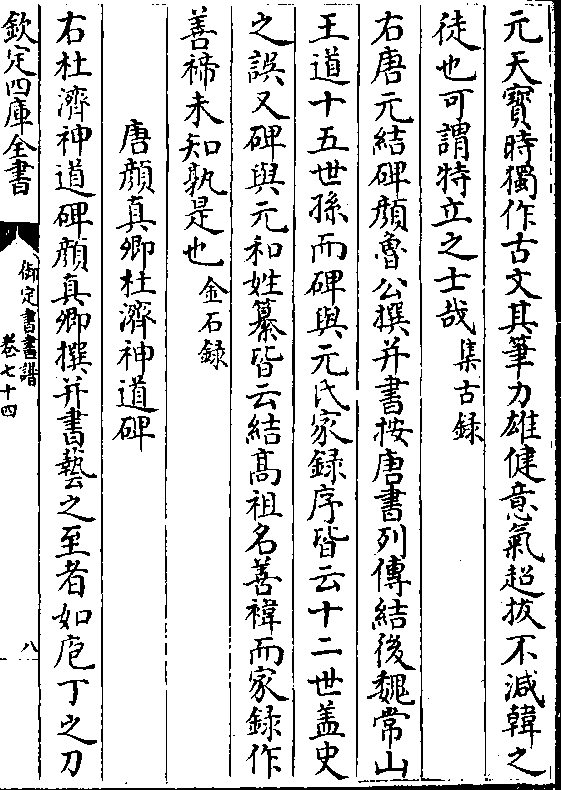 元天寶時獨作古文其筆力雄健意氣超拔不減韓之
徒也可謂特立之士哉 集古録
右唐元結碑顔魯公撰并書按唐書列傳結後魏常山
王道十五世孫而碑與元氏家録序皆云十二世盖史
之誤又碑與元和姓纂皆云結髙祖名善禕而家録作
善禘未知孰是也 金石録
唐顔真卿杜濟神道碑
右杜濟神道碑顔真卿撰并書藝之至者如庖丁之刀
欽定四庫全書
御定書畫譜
卷七十四
八